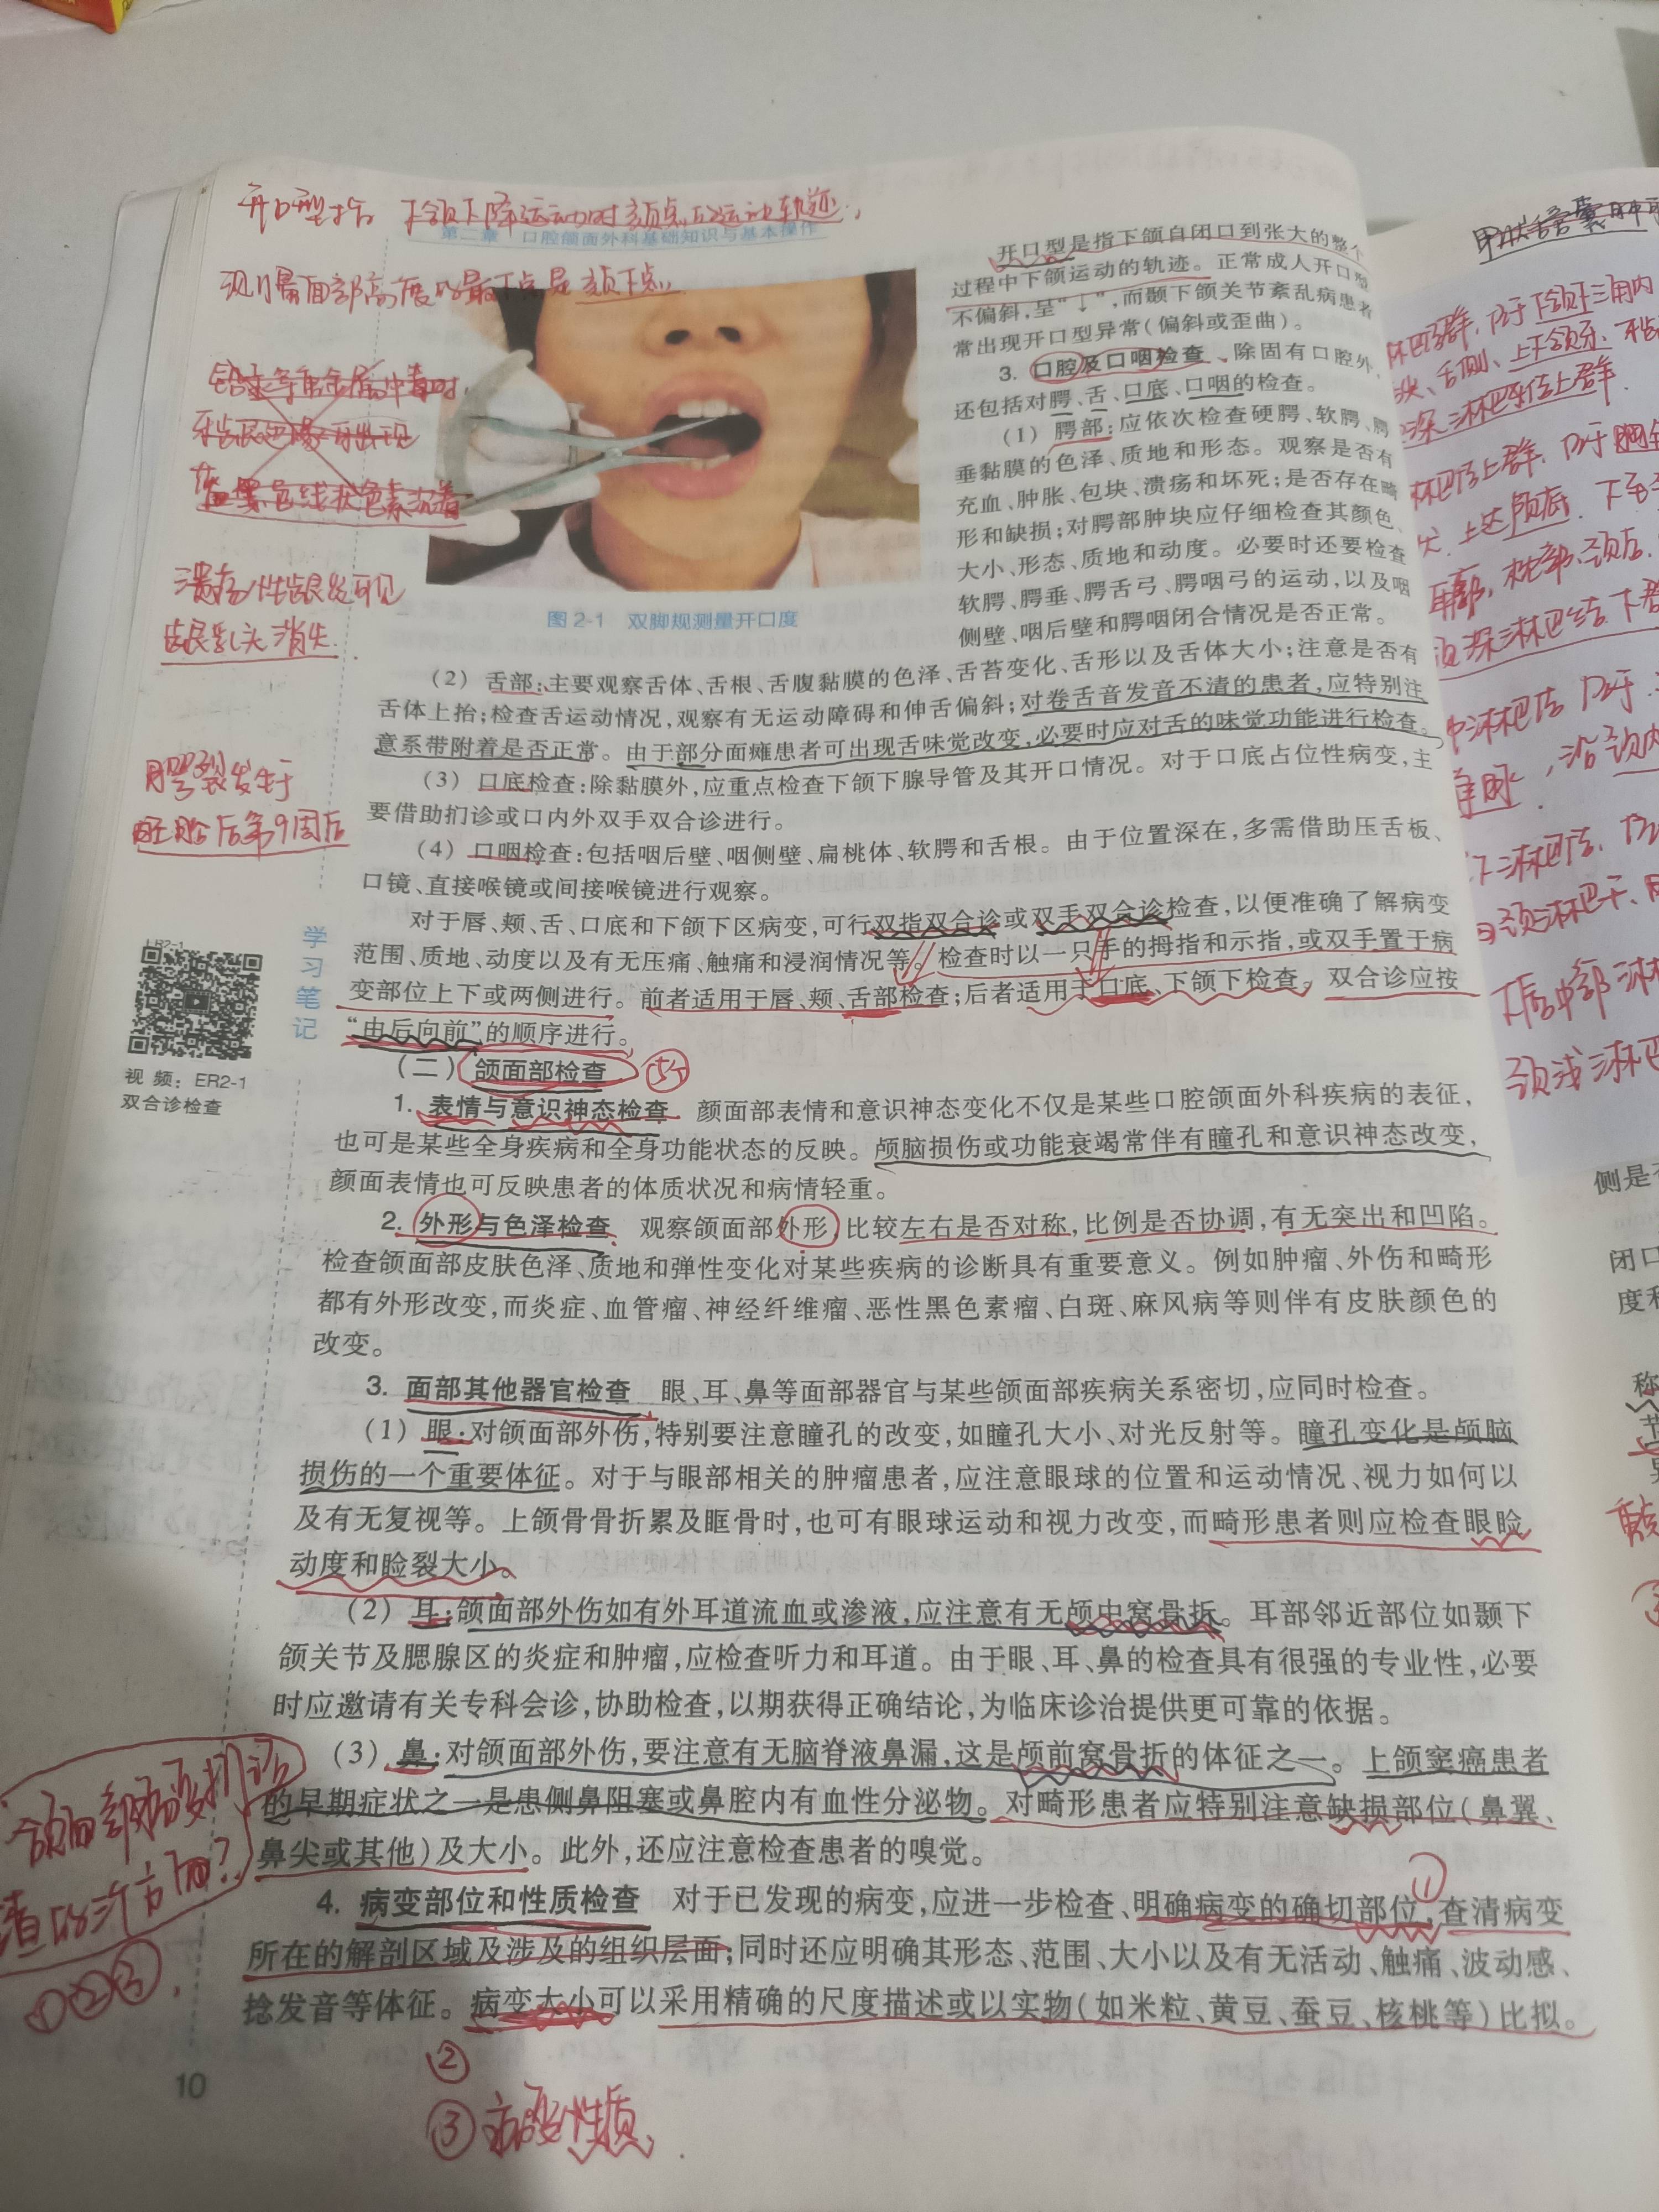 开口型指 下颌下降运动时颏点的运动轨迹,
第二章 口腔颌面外科基础知识与基本操作
测量面部高度的最下点是颏下点.
铅汞等重金属中毒时,
溃疡性龈炎可见
龈乳头消失.
腭裂发生于
胚胎后第9周后
图 2-1 双脚规测量开口度
开口型是指下颌自闭口到张大的整个
过程中下颌运动的轨迹。正常成人开口型
不偏斜,呈“↓”,而颞下颌关节紊乱病患者
常出现开口型异常(偏斜或歪曲)。
3. 口腔及口咽检查 除固有口腔外,
还包括对腭、舌、口底、口咽的检查。
(1) 腭部:应依次检查硬腭、软腭、腭
垂黏膜的色泽、质地和形态。观察是否有
充血、肿胀、包块、溃疡和坏死;是否存在畸
形和缺损;对腭部肿块应仔细检查其颜色、
大小、形态、质地和动度。必要时还要检查
软腭、腭垂、腭舌弓、腭咽弓的运动,以及咽
侧壁、咽后壁和腭咽闭合情况是否正常。
(2) 舌部:主要观察舌体、舌根、舌腹黏膜的色泽、舌苔变化、舌形以及舌体大小;注意是否有
舌体上抬;检查舌运动情况,观察有无运动障碍和伸舌偏斜;对卷舌音发音不清的患者,应特别注
意系带附着是否正常。由于部分面瘫患者可出现舌味觉改变,必要时应对舌的味觉功能进行检查。
(3) 口底检查:除黏膜外,应重点检查下颌下腺导管及其开口情况。对于口底占位性病变,主
要借助扪诊或口内外双手双合诊进行。
(4) 口咽检查:包括咽后壁、咽侧壁、扁桃体、软腭和舌根。由于位置深在,多需借助压舌板、
口镜、直接喉镜或间接喉镜进行观察。
对于唇、颊、舌、口底和下颌下区病变,可行双指双合诊或双手双合诊检查,以便准确了解病变
范围、质地、动度以及有无压痛、触痛和浸润情况等。检查时以一只手的拇指和示指,或双手置于病
变部位上下或两侧进行。前者适用于唇、颊、舌部检查;后者适用于口底、下颌下检查。双合诊应按
“由后向前”的顺序进行。
学习笔记
视 频:ER2-1
双合诊检查
(二) 颌面部检查
1. 表情与意识神态检查 颜面部表情和意识神态变化不仅是某些口腔颌面外科疾病的表征,
也可是某些全身疾病和全身功能状态的反映。颅脑损伤或功能衰竭常伴有瞳孔和意识神态改变,
颜面表情也可反映患者的体质状况和病情轻重。
2. 外形与色泽检查 观察颌面部外形,比较左右是否对称,比例是否协调,有无突出和凹陷。
检查颌面部皮肤色泽、质地和弹性变化对某些疾病的诊断具有重要意义。例如肿瘤、外伤和畸形
都有外形改变,而炎症、血管瘤、神经纤维瘤、恶性黑色素瘤、白斑、麻风病等则伴有皮肤颜色的
改变。
3. 面部其他器官检查 眼、耳、鼻等面部器官与某些颌面部疾病关系密切,应同时检查。
(1) 眼:对颌面部外伤,特别要注意瞳孔的改变,如瞳孔大小、对光反射等。瞳孔变化是颅脑
损伤的一个重要体征。对于与眼部相关的肿瘤患者,应注意眼球的位置和运动情况、视力如何以
及有无复视等。上颌骨骨折累及眶骨时,也可有眼球运动和视力改变,而畸形患者则应检查眼睑
动度和睑裂大小。
(2) 耳:颌面部外伤如有外耳道流血或渗液,应注意有无颅中窝骨折。耳部邻近部位如颞下
颌关节及腮腺区的炎症和肿瘤,应检查听力和耳道。由于眼、耳、鼻的检查具有很强的专业性,必要
时应邀请有关专科会诊,协助检查,以期获得正确结论,为临床诊治提供更可靠的依据。
(3) 鼻:对颌面部外伤,要注意有无脑脊液鼻漏,这是颅前窝骨折的体征之一。上颌窦癌患者
的早期症状之一是患侧鼻阻塞或鼻腔内有血性分泌物。对畸形患者应特别注意缺损部位(鼻翼、
鼻尖或其他)及大小。此外,还应注意检查患者的嗅觉。
4. 病变部位和性质检查 对于已发现的病变,应进一步检查、明确病变的确切部位,查清病变
所在的解剖区域及涉及的组织层面;同时还应明确其形态、范围、大小以及有无活动、触痛、波动感、
捻发音等体征。病变大小可以采用精确的尺度描述或以实物(如米粒、黄豆、蚕豆、核桃等)比拟。
①
②
③ 病变性质
①②③.
10
侧是否
闭口
度和
称